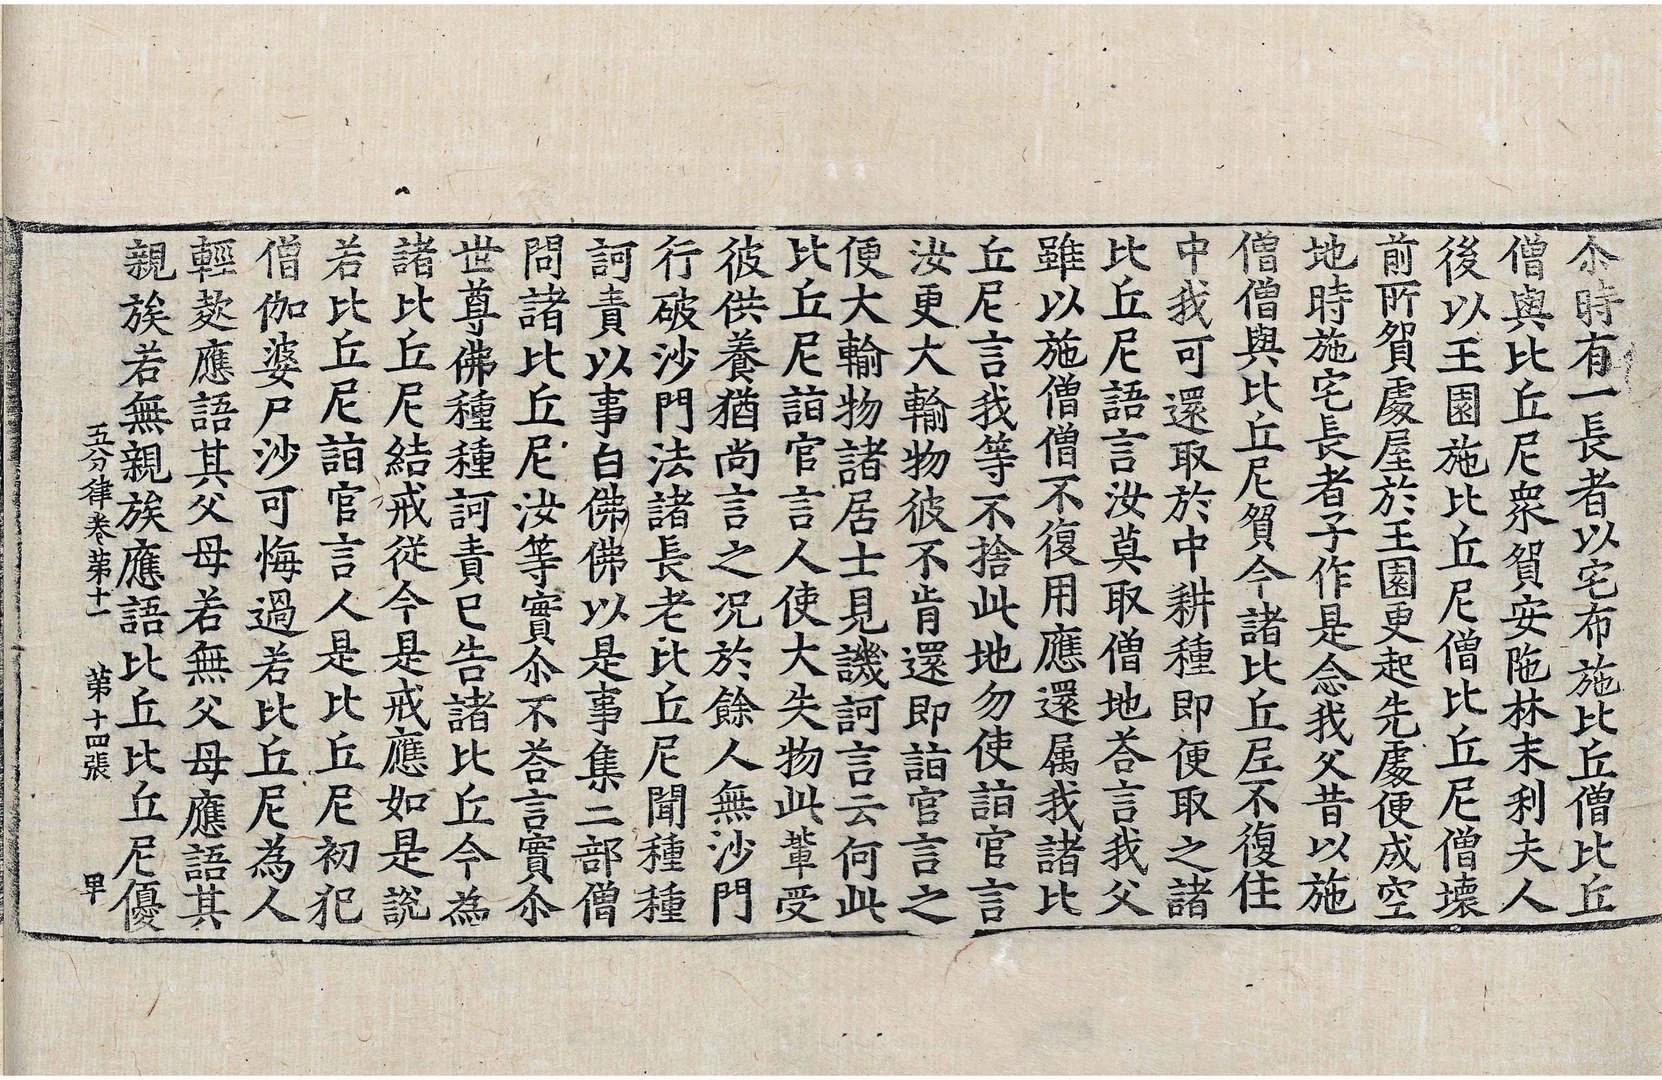 尒時有一長者以宅布施比丘僧比丘
僧與比丘尼衆貿安陁林末利夫人
後以王園施比丘尼僧比丘尼僧壞
前所貿處屋於王園更起先處便成空
地時施宅長者子作是念我父昔以施
僧僧與比丘尼貿今諸比丘尼不復住
中我可還取於中耕種即便取之諸
比丘尼語言汝莫取僧地荅言我父
雖以施僧僧不復用應還属我諸比
丘尼言我等不捨此地勿使詣官言
汝更大輸物彼不肯還即詣官言之
便大輸物諸居士見譏訶言云何此
比丘尼詣官言人使大失物此輩受
彼供養猶尚言之况於餘人無沙門
行破沙門法諸長老比丘尼聞種種
訶責以事白佛佛以是事集二部僧
問諸比丘尼汝等實尒不荅言實尒
世尊佛種種訶責已告諸比丘今為
諸比丘尼結戒從今是戒應如是說
若比丘尼詣官言人是比丘尼初犯
僧伽婆尸沙可悔過若比丘尼為人
輕欺應語其父母若無父母應語其
親族若無親族應語比丘比丘尼優
五分律卷苐十一　苐十四張　甲